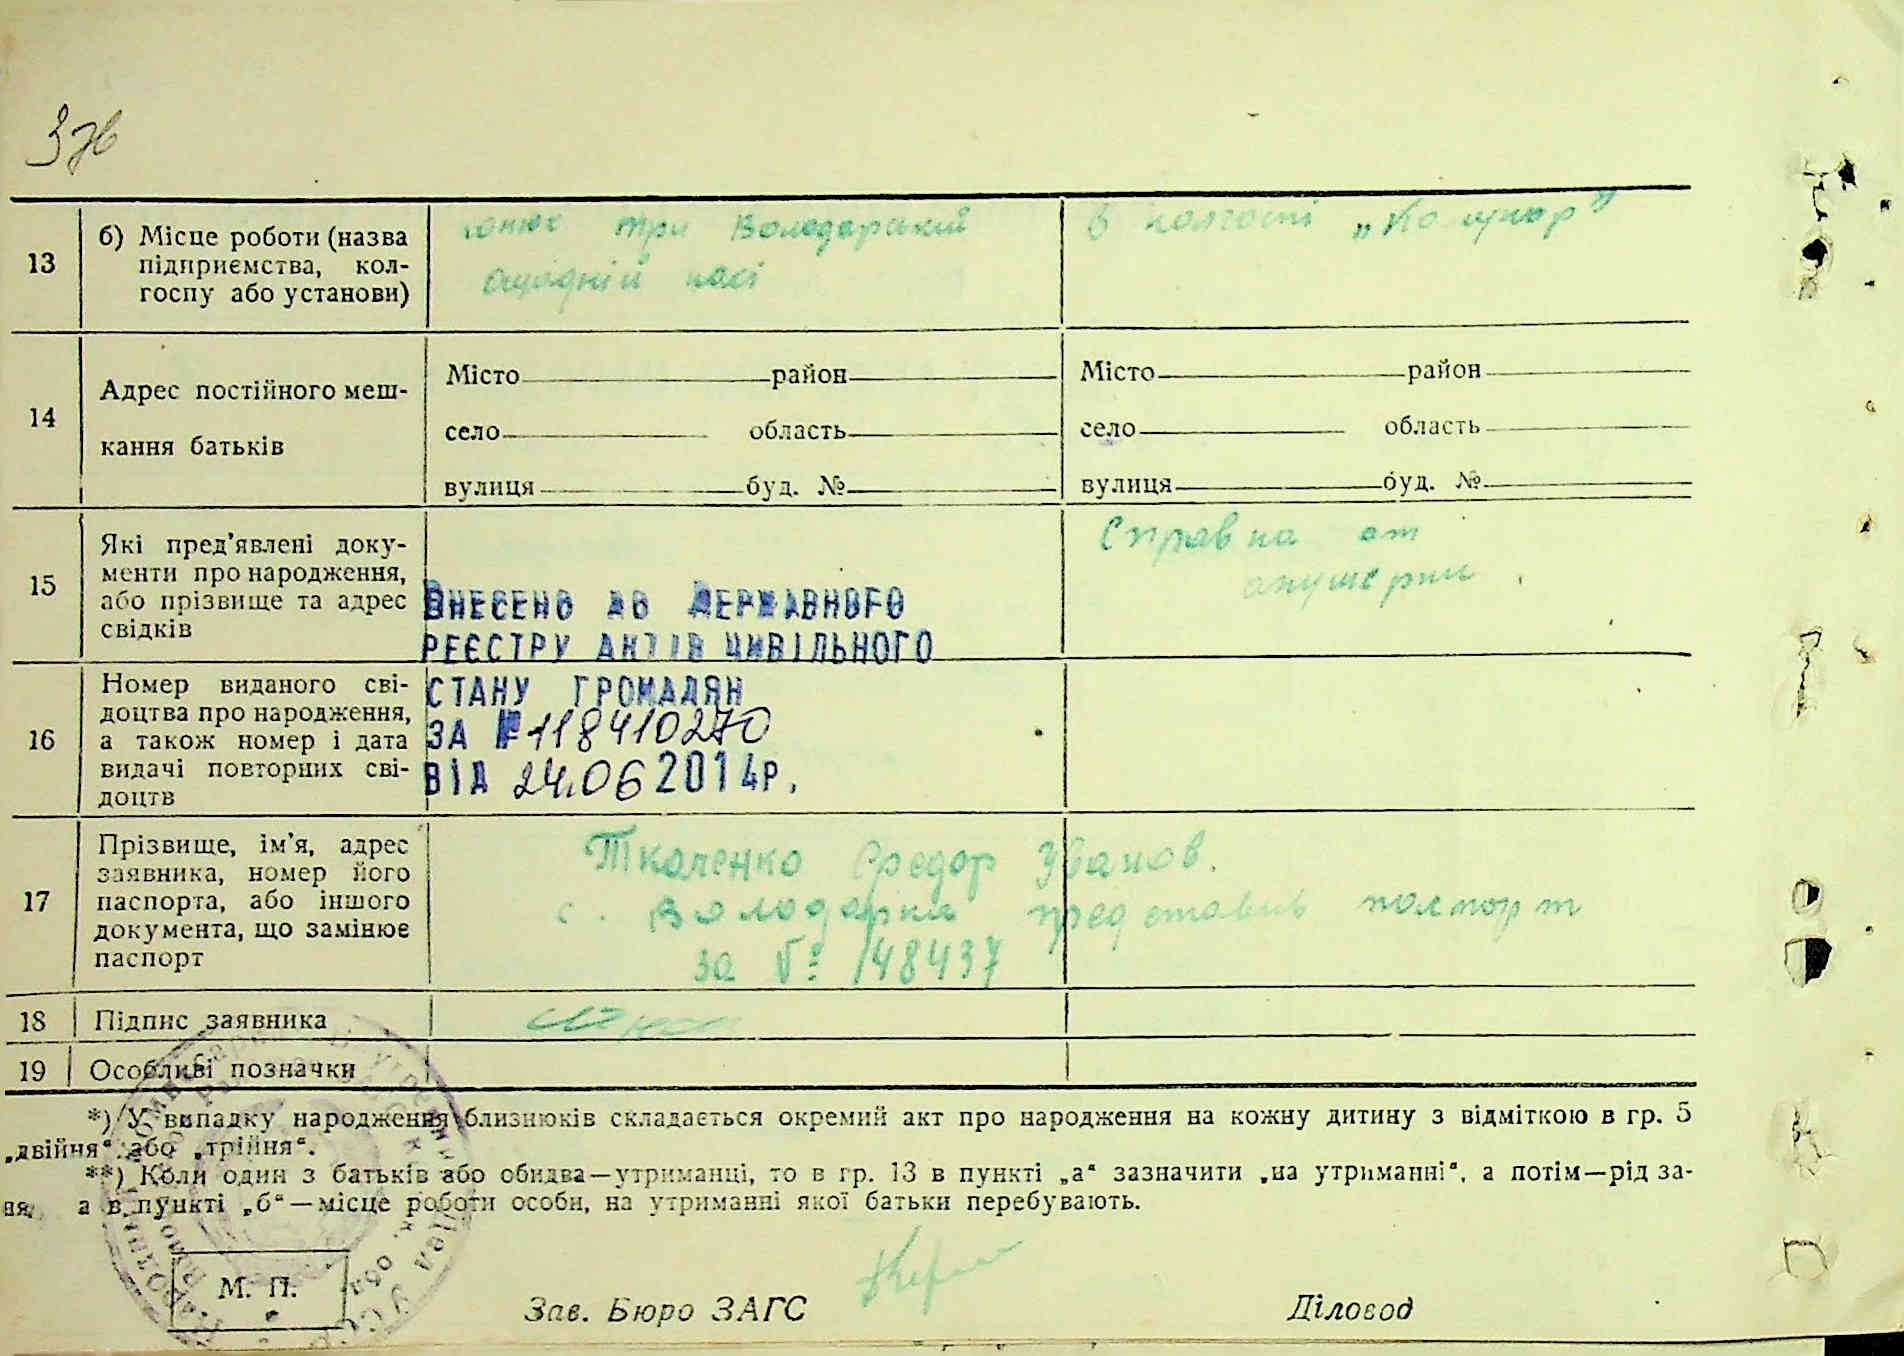 13
б) Місце роботи (назва
підприємства, кол-
госпу або установи)
конюх при Володарській
ощадній касі
в колгоспі „Комунар”
14
Адрес постійного меш-
кання батьків
Місто район
село область
вулиця буд. №
Місто район
село область
вулиця буд. №
15
Які пред'явлені доку-
менти про народження,
або прізвище та адрес
свідків
Справка от
акушерки.
ВНЕСЕНО ДО ДЕРЖАВНОГО
РЕЄСТРУ АКТІВ ЦИВІЛЬНОГО
СТАНУ ГРОМАДЯН
ЗА № 118410270
ВІД 24.06 2014р.
16
Номер виданого сві-
доцтва про народження,
а також номер і дата
видачі повторних сві-
доцтв
17
Прізвище, ім'я, адрес
заявника, номер його
паспорта, або іншого
документа, що замінює
паспорт
Ткаченко Федор Иванов.
с. Володарка представив паспорт
за № 148437
18
Підпис заявника
19
Особливі позначки
*) У випадку народження близнюків складається окремий акт про народження на кожну дитину з відміткою в гр. 5
„двійня“ або „трійня“.
**) Коли один з батьків або обидва—утриманці, то в гр. 13 в пункті „а“ зазначити „на утриманні“, а потім—рід за-
ня, а в пункті „б“—місце роботи особи, на утриманні якої батьки перебувають.
М. П.
Зав. Бюро ЗАГС
Діловод